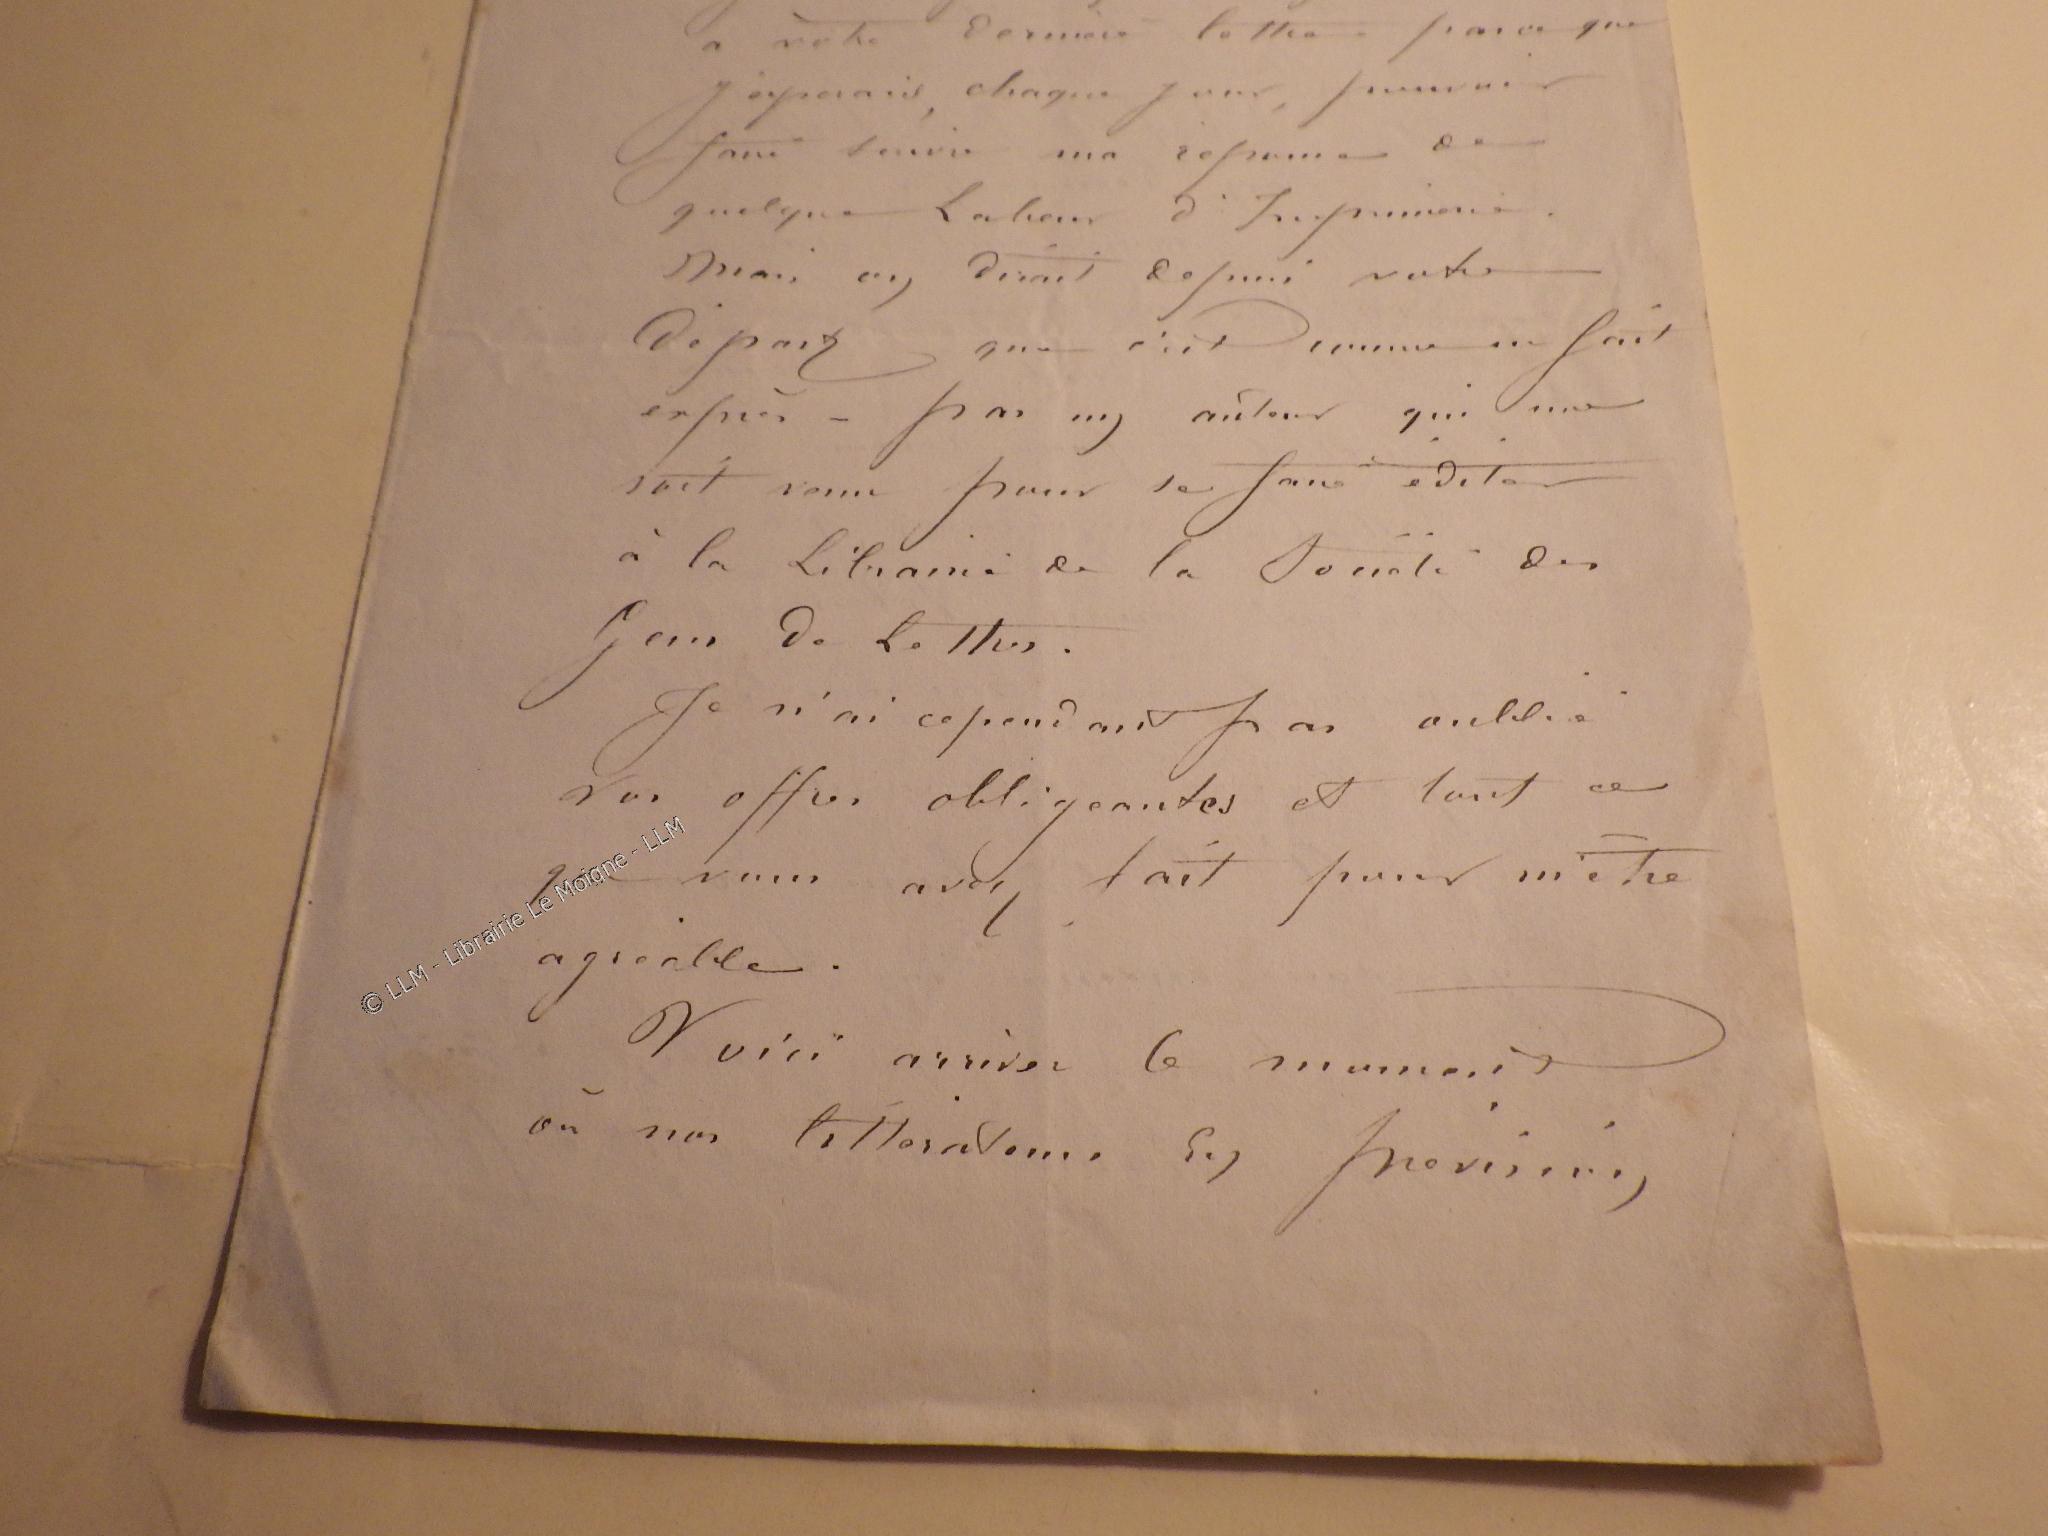 à votre dernière lettre parce que
j'espérais, chaque jour, pouvoir
faire suivre ma réponse de
quelque Labeur d'Imprimerie.
Mais on dirait depuis votre
départ que c'est comme un fait
exprès - pas un auteur qui me
soit venu pour se faire éditer
à la Librairie de la Société des
Gens de Lettres.
Je n'ai cependant pas oublié
vos offres obligeantes et tout ce
que vous avez fait pour m'être
agréable.
Voici arriver le moment
où nos littérateurs en prévision
© LLM - Librairie Le Moigne - LLM